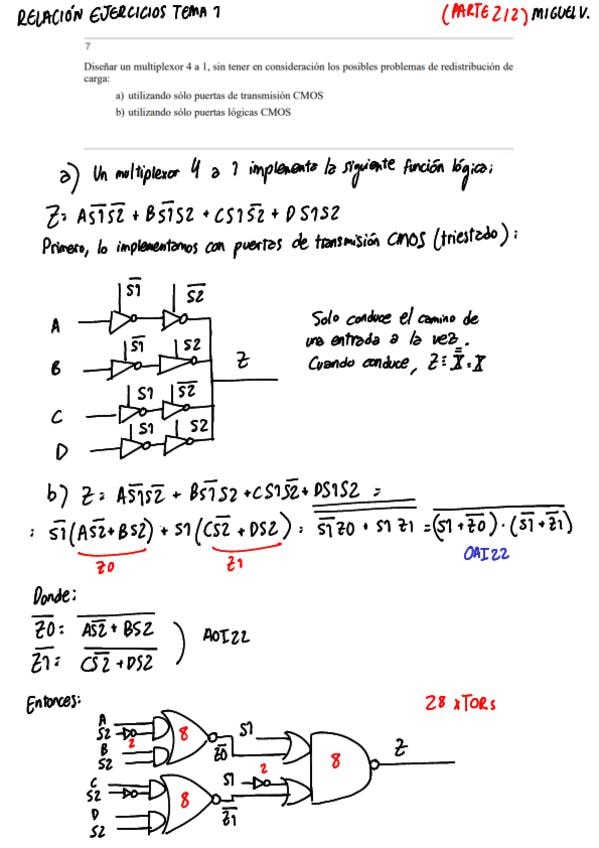 RELACIÓN EJERCICIOS TEMA 1 (PARTE 2/2) MIGUEL V.
7
Diseñar un multiplexor 4 a 1, sin tener en consideración los posibles problemas de redistribución de
carga:
a) utilizando sólo puertas de transmisión CMOS
b) utilizando sólo puertas lógicas CMOS
a) Un multiplexor 4 a 1 implementa la siguiente función lógica:
Z = AS̅1̅S̅2̅ + BS̅1̅S2 + CS1S̅2̅ + DS1S2
Primero, lo implementamos con puertas de transmisión CMOS (triestado):
S̅1̅ S̅2̅
A
S̅1̅ S2
B
Z
S1 S̅2̅
C
S1 S2
D
Solo conduce el camino de
una entrada a la vez.
Cuando conduce, Z = X̿ = X
b) Z = AS̅1̅S̅2̅ + BS̅1̅S2 + CS1S̅2̅ + DS1S2 =
= S̅1̅(AS̅2̅+BS2) + S1(CS̅2̅+DS2) = S̅1̅Z0 + S1Z1 = (S1+Z̅0̅)·(S̅1̅+Z̅1̅)
Z0 Z1 OAI22
Donde:
Z̅0̅ = AS̅2̅ + BS2
Z̅1̅ = CS̅2̅ + DS2
AOI22
Entonces:
28 xTORs
A
S2 2
B
S2
8
Z̅0̅
S1
C
S2
D
S2
8
Z̅1̅
S1 2
8
Z